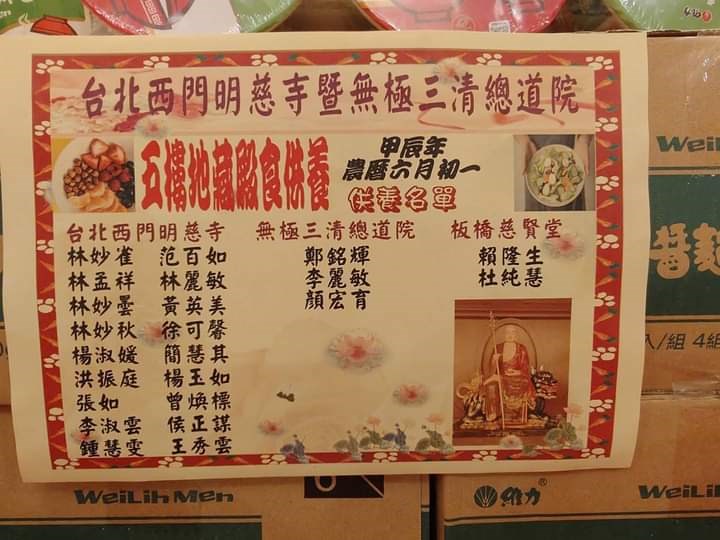 台北西門明慈寺暨無極三清總道院
五樓地藏殿食供養
甲辰年
農曆六月初一
供養名單
台北西門明慈寺
林妙雀 范百如
林孟祥 林麗敏
林妙曇 黃英美
林妙秋 徐可馨
楊淑媛 簡慧其
洪振庭 楊玉如
張如 曾煥標
李淑雲 侯正謀
鍾慧雯 王秀雲
無極三清總道院
鄭銘輝
李麗敏
顏宏育
板橋慈賢堂
賴隆生
杜純慧
WeiL
醬麵
入/組 4組
WeiLih Men
維力®
WeiLi